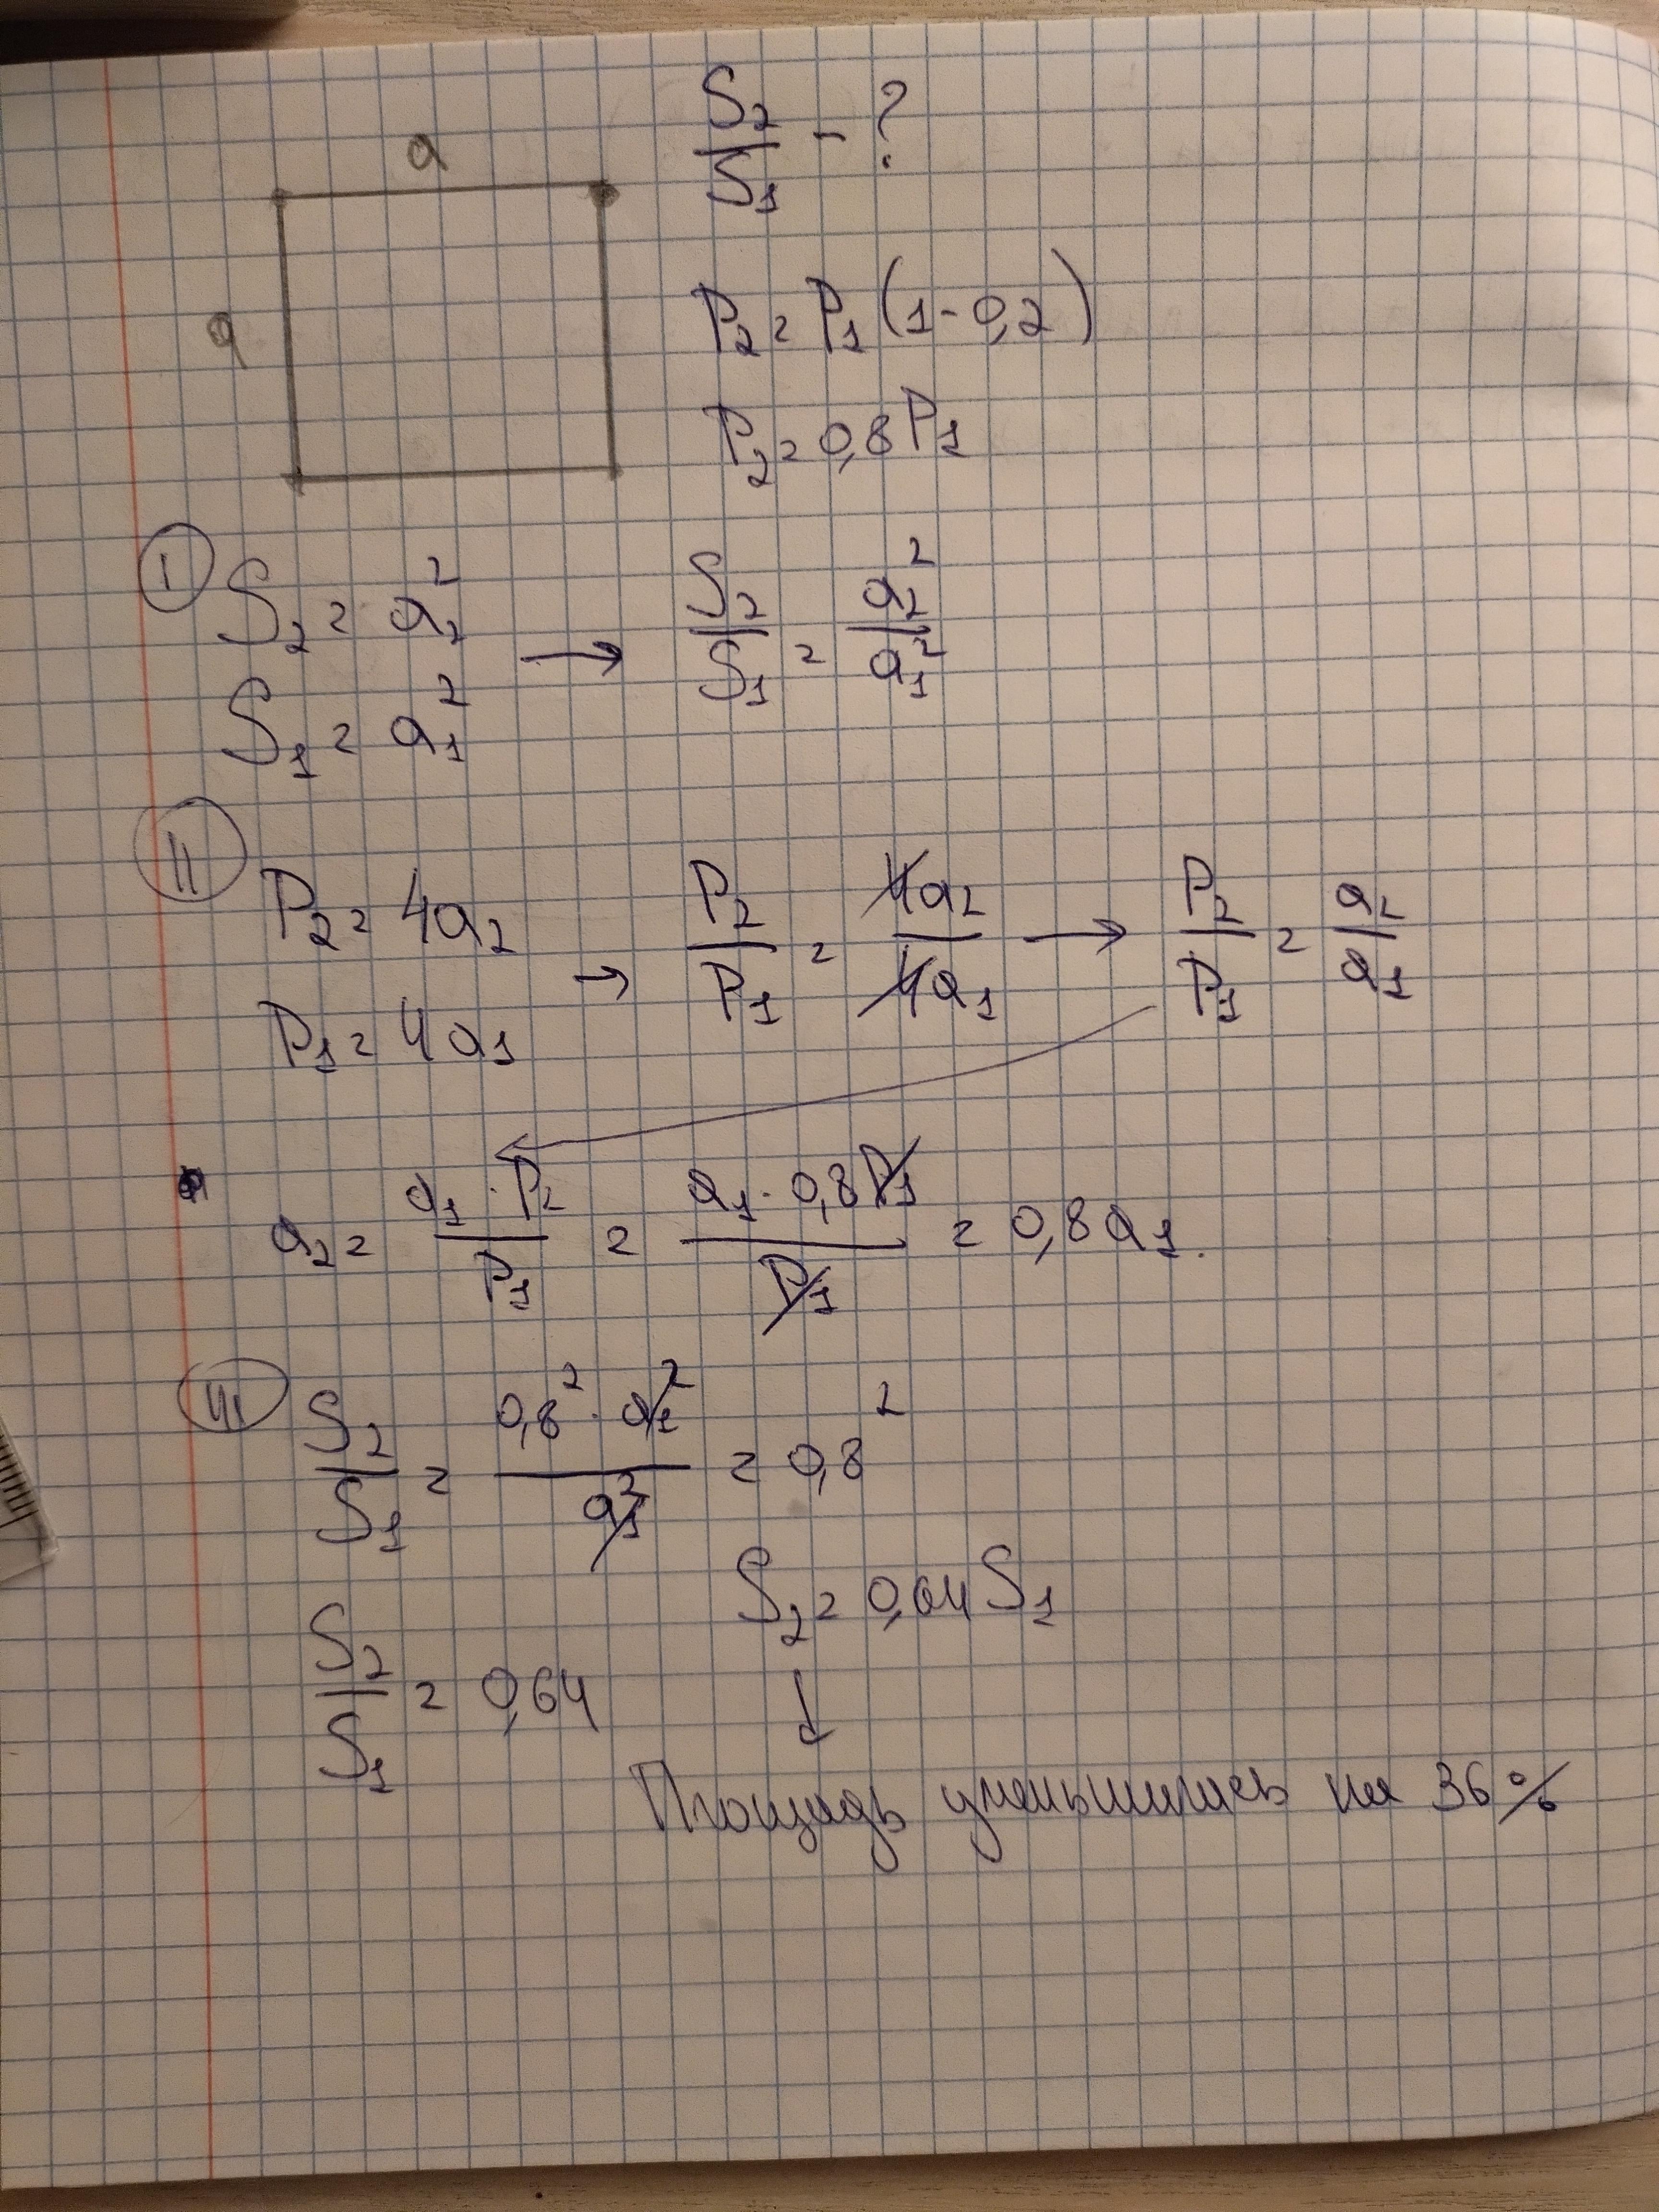 a
S₂/S₁ - ?
a
P₂ = P₁(1-0,2)
P₂ = 0,8P₁
I
S₂ = a₂²
S₁ = a₁²
→ S₂/S₁ = a₂²/a₁²
II
P₂ = 4a₂
P₁ = 4a₁
→ P₂/P₁ = 4a₂/4a₁ → P₂/P₁ = a₂/a₁
a₂ = a₁·P₂/P₁ = a₁·0,8P₁/P₁ = 0,8a₁.
III
S₂/S₁ = 0,8²·a₁²/a₁² = 0,8²
S₂ = 0,64S₁
S₂/S₁ = 0,64
↓
Площадь уменьшилась на 36%